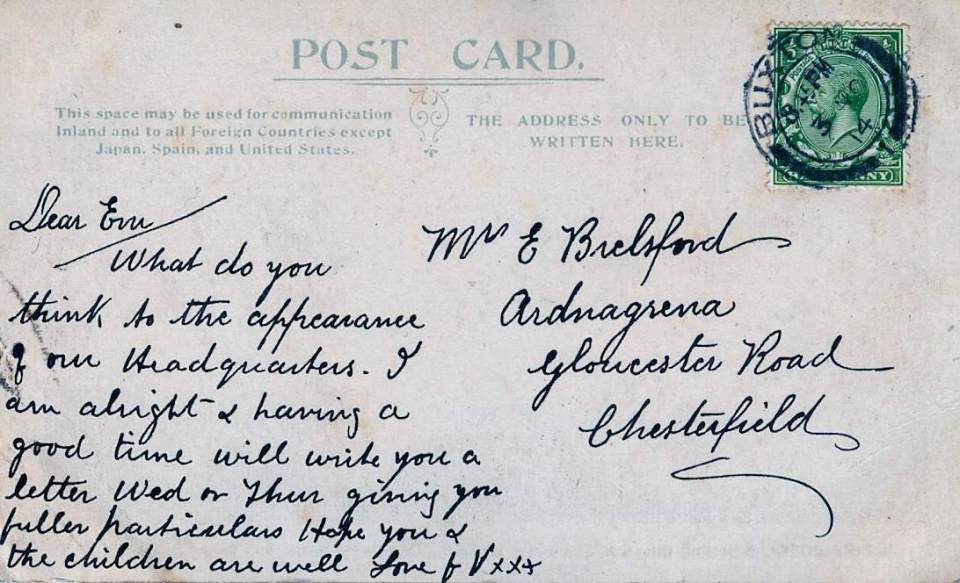 POST CARD.
This space may be used for communication
Inland and to all Foreign Countries except
Japan, Spain, and United States.
THE ADDRESS ONLY TO BE
WRITTEN HERE.
BUXTON
PM
4
PENNY
Dear Em
What do you
think to the appearance
of our Headquarters. I
am alright & having a
good time will write you a
letter Wed or Thur giving you
fuller particulars Hope you &
the children are well Love f V x x x
Mrs E Brelsford
Ardnagrena
Gloucester Road
Chesterfield